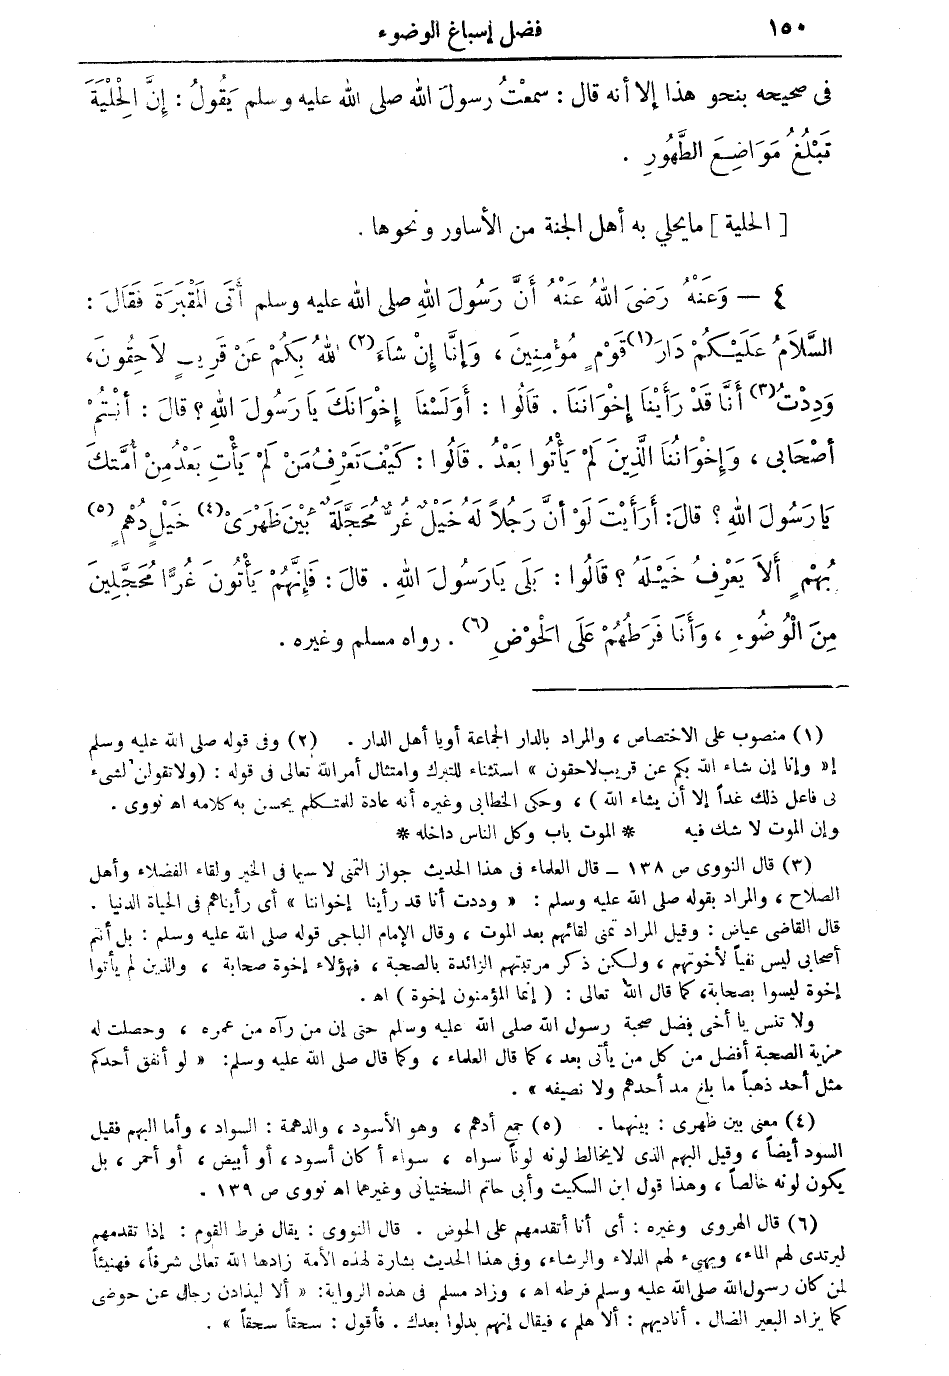 ١٥٠ فضل إسباغ الوضوء
فى صحيحه بنحو هذا إلا أنه قال : سمعْتُ رسولَ الله صلى الله عليه وسلم يَقُولُ : إنَّ الْحِلْيَةَ
تَبْلُغُ مَوَاضِعَ الطَّهُورِ .
[ الحلية ] ما يحلي به أهل الجنة من الأساور ونحوها .
٤ — وَعَنْهُ رَضىَ اللهُ عَنْهُ أَنَّ رَسُولَ اللهِ صلى الله عليه وسلم أَتَى الْمَقْبَرَةَ فَقَالَ :
السَّلَامُ عَلَيْكُمْ دَارَ (١) قَوْمٍ مُؤْمِنِينَ ، وَإِنَّا إِنْ شَاءَ (٢) اللهُ بِكُمْ عَنْ قَرِيبٍ لَاحِقُونَ،
وَدِدْتُ (٣) أَنَّا قَدْ رَأَيْنَا إِخْوَانَنَا . قَالُوا : أَوَلَسْنَا إِخْوَانَكَ يَارَسُولَ اللهِ ؟ قالَ : أنْتُمْ
أصْحَابى ، وَإِخْوَانُنَا الَّذِينَ لَمْ يَأْتُوا بَعْدُ . قَالُوا : كَيْفَ تَعْرِفُ مَنْ لَمْ يَأْتِ بَعْدُ مِنْ أُمَّتِكَ
يَارَسُولَ اللهِ ؟ قالَ: أَرَأَيْتَ لَوْ أنَّ رَجُلاً لَهُ خَيْلٌ غُرٌّ مُحَجَّلَةٌ بَيْنَ ظَهْرَىْ (٤) خَيْلٍ دُهْمٍ (٥)
بُهْمٍ أَلاَ يَعْرِفُ خَيْلَهُ ؟ قَالُوا : بَلَى يَارَسُولَ اللهِ . قالَ : فَإِنَّهُمْ يَأْتُونَ غُرًّا مُحَجَّلِينَ
مِنَ الْوُضُوءِ ، وَأَنَا فَرَطُهُمْ عَلَى الْحَوْضِ (٦) . رواه مسلم وغيره .
(١) منصوب على الاختصاص ، والمراد بالدار الجماعة أويا أهل الدار . (٢) وفى قوله صلى الله عليه وسلم
« وإنا إن شاء الله بكم عن قريب لاحقون » استثناء للتبرك وامتثال أمر الله تعالى فى قوله : (ولا تقولن لشىء
نى فاعل ذلك غداً إلا أن يشاء الله ) ، وحكى الخطابى وغيره أنه عادة للمتكلم يحسن به كلامه اه نووى .
وإن الموت لا شك فيه * الموت باب وكل الناس داخله *
(٣) قال النووى ص ١٣٨ — قال العلماء فى هذا الحديث جواز التمنى لا سيما فى الخير ولقاء الفضلاء وأهل
الصلاح ، والمراد بقوله صلى الله عليه وسلم : « وددت أنا قد رأينا إخواننا » أى رأيناهم فى الحياة الدنيا .
قال القاضى عياض : وقيل المراد تمنى لقائهم بعد الموت ، وقال الإمام الباجى قوله صلى الله عليه وسلم : بل أنتم
أصحابى ليس نفياً لأخوتهم ، ولكن ذكر مرتبتهم الزائدة بالصحبة ، فهؤلاء إخوة صحابة ، والذين لم يأتوا
إخوة ليسوا بصحابة، كما قال الله تعالى : ( إنما المؤمنون إخوة ) اه .
ولا تنس يا أخى فضل صحبة رسول الله صلى الله عليه وسلم حتى إن من رآه من عمره ، وحصلت له
مزية الصحبة أفضل من كل من يأتى بعد ، كما قال العلماء ، وكما قال صلى الله عليه وسلم: « لو أنفق أحدكم
مثل أحد ذهباً ما بلغ مد أحدهم ولا نصيفه » .
(٤) معنى بين ظهرى : بينهما . (٥) جمع أدهم ، وهو الأسود ، والدهمة : السواد ، وأما البهم فقيل
السود أيضاً ، وقيل البهم الذى لا يخالط لونه لوناً سواه ، سواء أكان أسود ، أو أبيض ، أو أحمر ، بل
يكون لونه خالصاً ، وهذا قول ابن السكيت وأبى حاتم السختيانى وغيرهما اه نووى ص ١٣٩ .
(٦) قال الهروى وغيره : أى أنا أتقدمهم على الحوض . قال النووى : يقال فرط القوم : إذا تقدمهم
ليرتدى لهم الماء، ويهيء لهم الدلاء والرشاء، وفى هذا الحديث بشارة لهذه الأمة زادها الله تعالى شرفاً، فهنيئاً
لمن كان رسول الله صلى الله عليه وسلم فرطه اه ، وزاد مسلم فى هذه الرواية: « ألا ليذادن رجال عن حوضى
كما يزاد البعير الضال . أناديهم : ألا هلم ، فيقال إنهم بدلوا بعدك . فأقول : سحقاً سحقاً » .